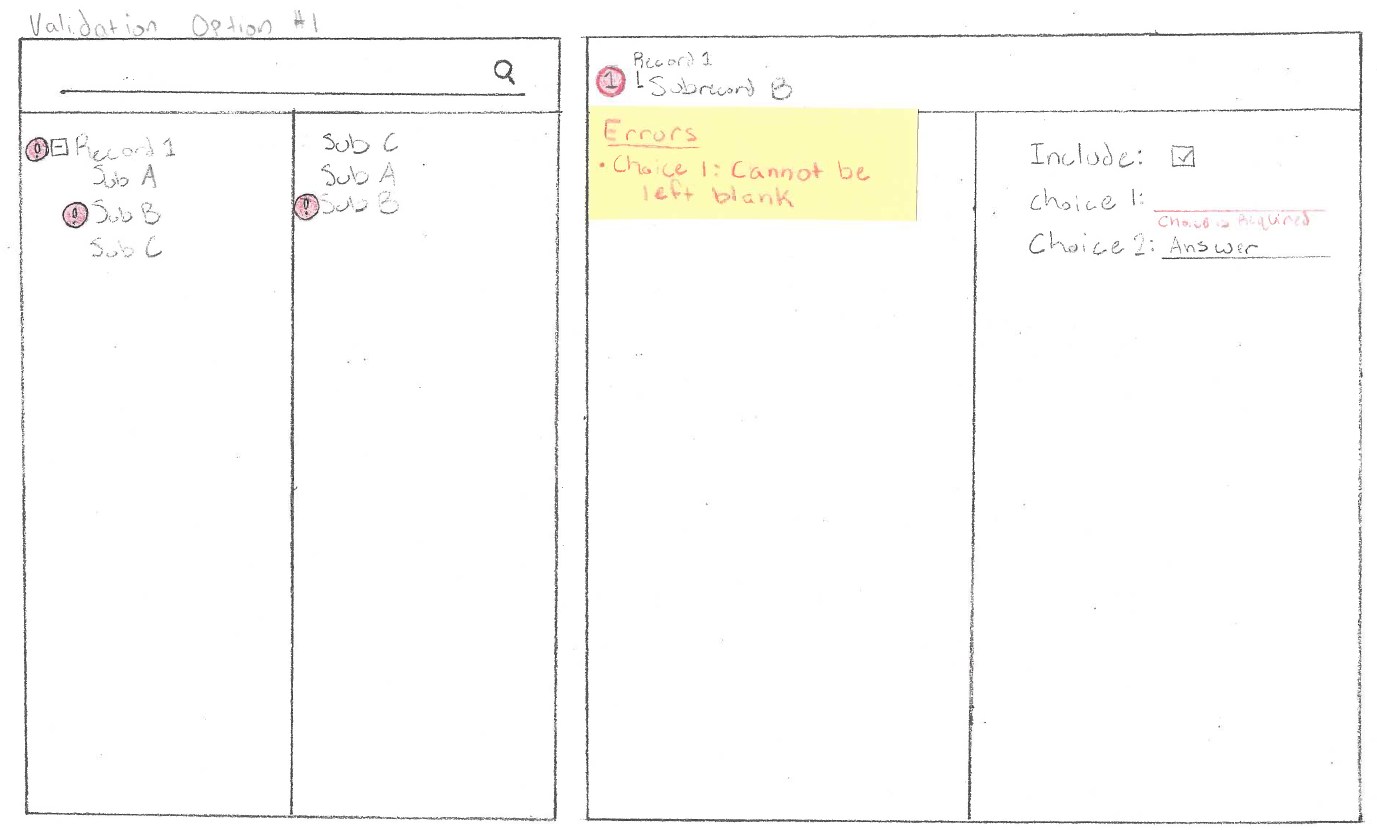 Validation Option #1
! Record 1
Sub A
! Sub B
Sub C
Sub C
Sub A
! Sub B
Record 1
1 Subrecord B
Errors
• Choice 1: Cannot be
left blank
Include:
Choice 1:
Choice is Required
Choice 2: Answer